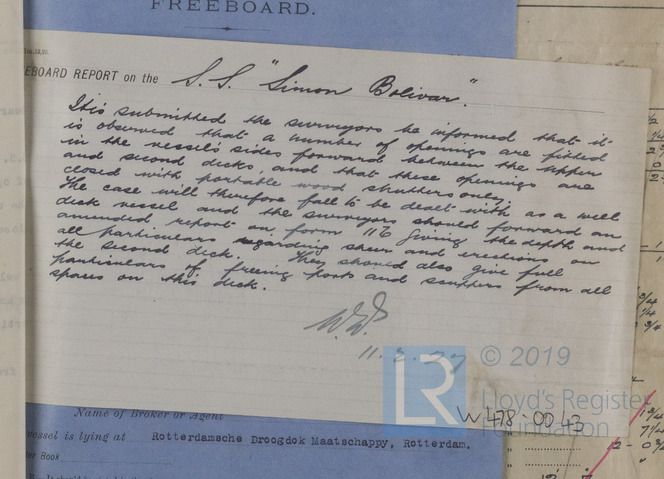 FREEBOARD.
EEBOARD REPORT on the S.S. "Simon Bolivar".
It is submitted the surveyors be informed that it
is observed that a number of openings are fitted
in the vessel's sides forward between the upper
and second decks, and that these openings are
closed with portable wood shutters only.
The case will therefore fall to be dealt with as a well
deck vessel and the surveyors should forward an
amended report on form 11b giving the depth and
all particulars regarding sheer and erections on
the second deck. They should also give full
particulars of freeing ports and scuppers from all
spaces on this deck.
LR © 2019
Lloyd's Register
Foundation
W478-0043
Name of Broker or Agent
vessel is lying at Rotterdamsche Droogdok Maatschappy, Rotterdam.
er Book